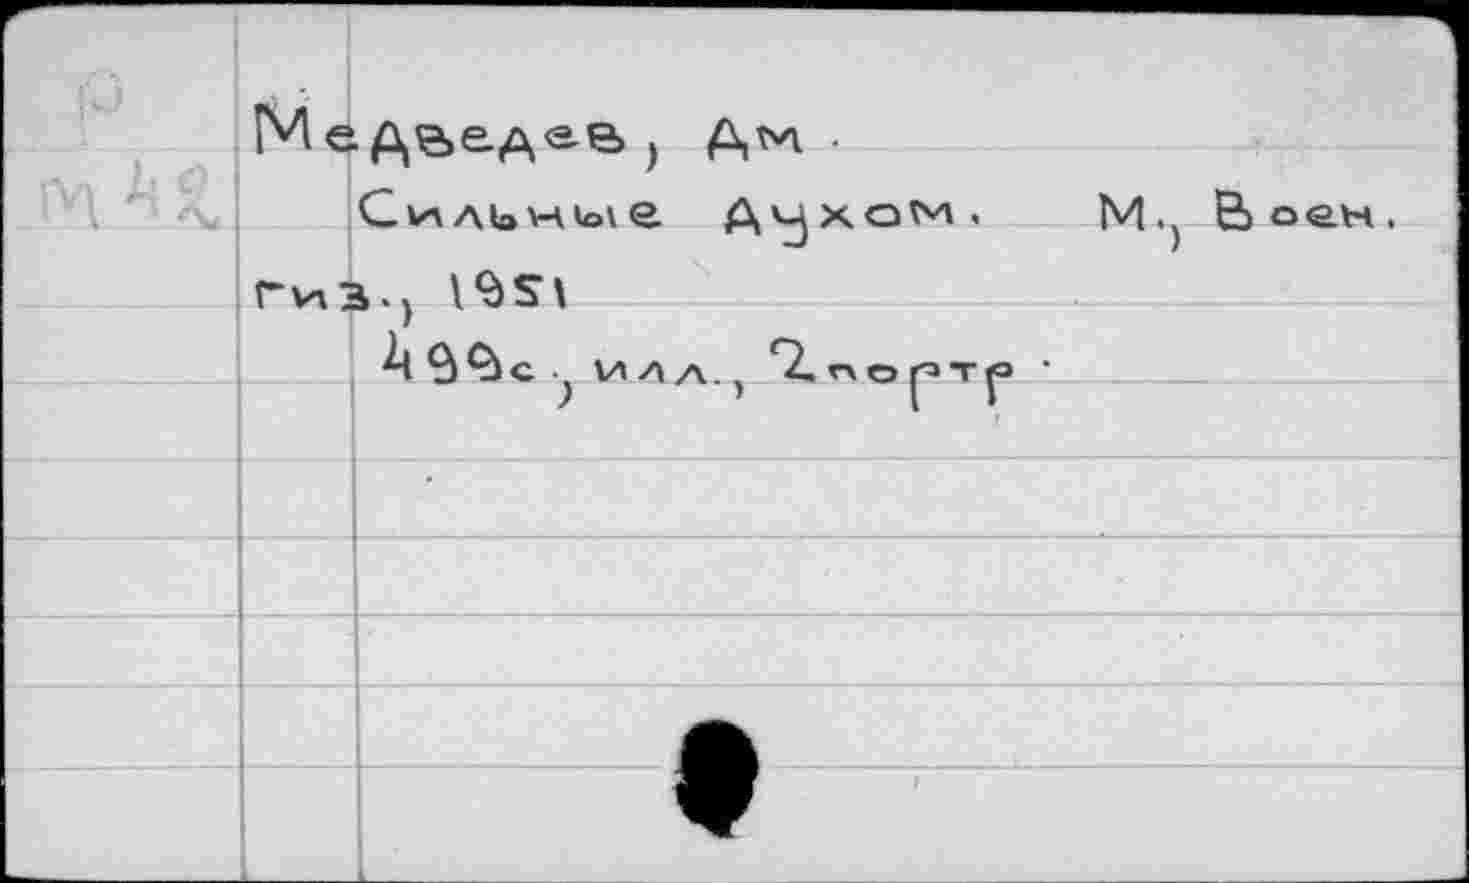 Р
Медведев, Дм.
М42
Сильные духом. М., Воен.
гиз., 1951
499с., илл., 2 портр.